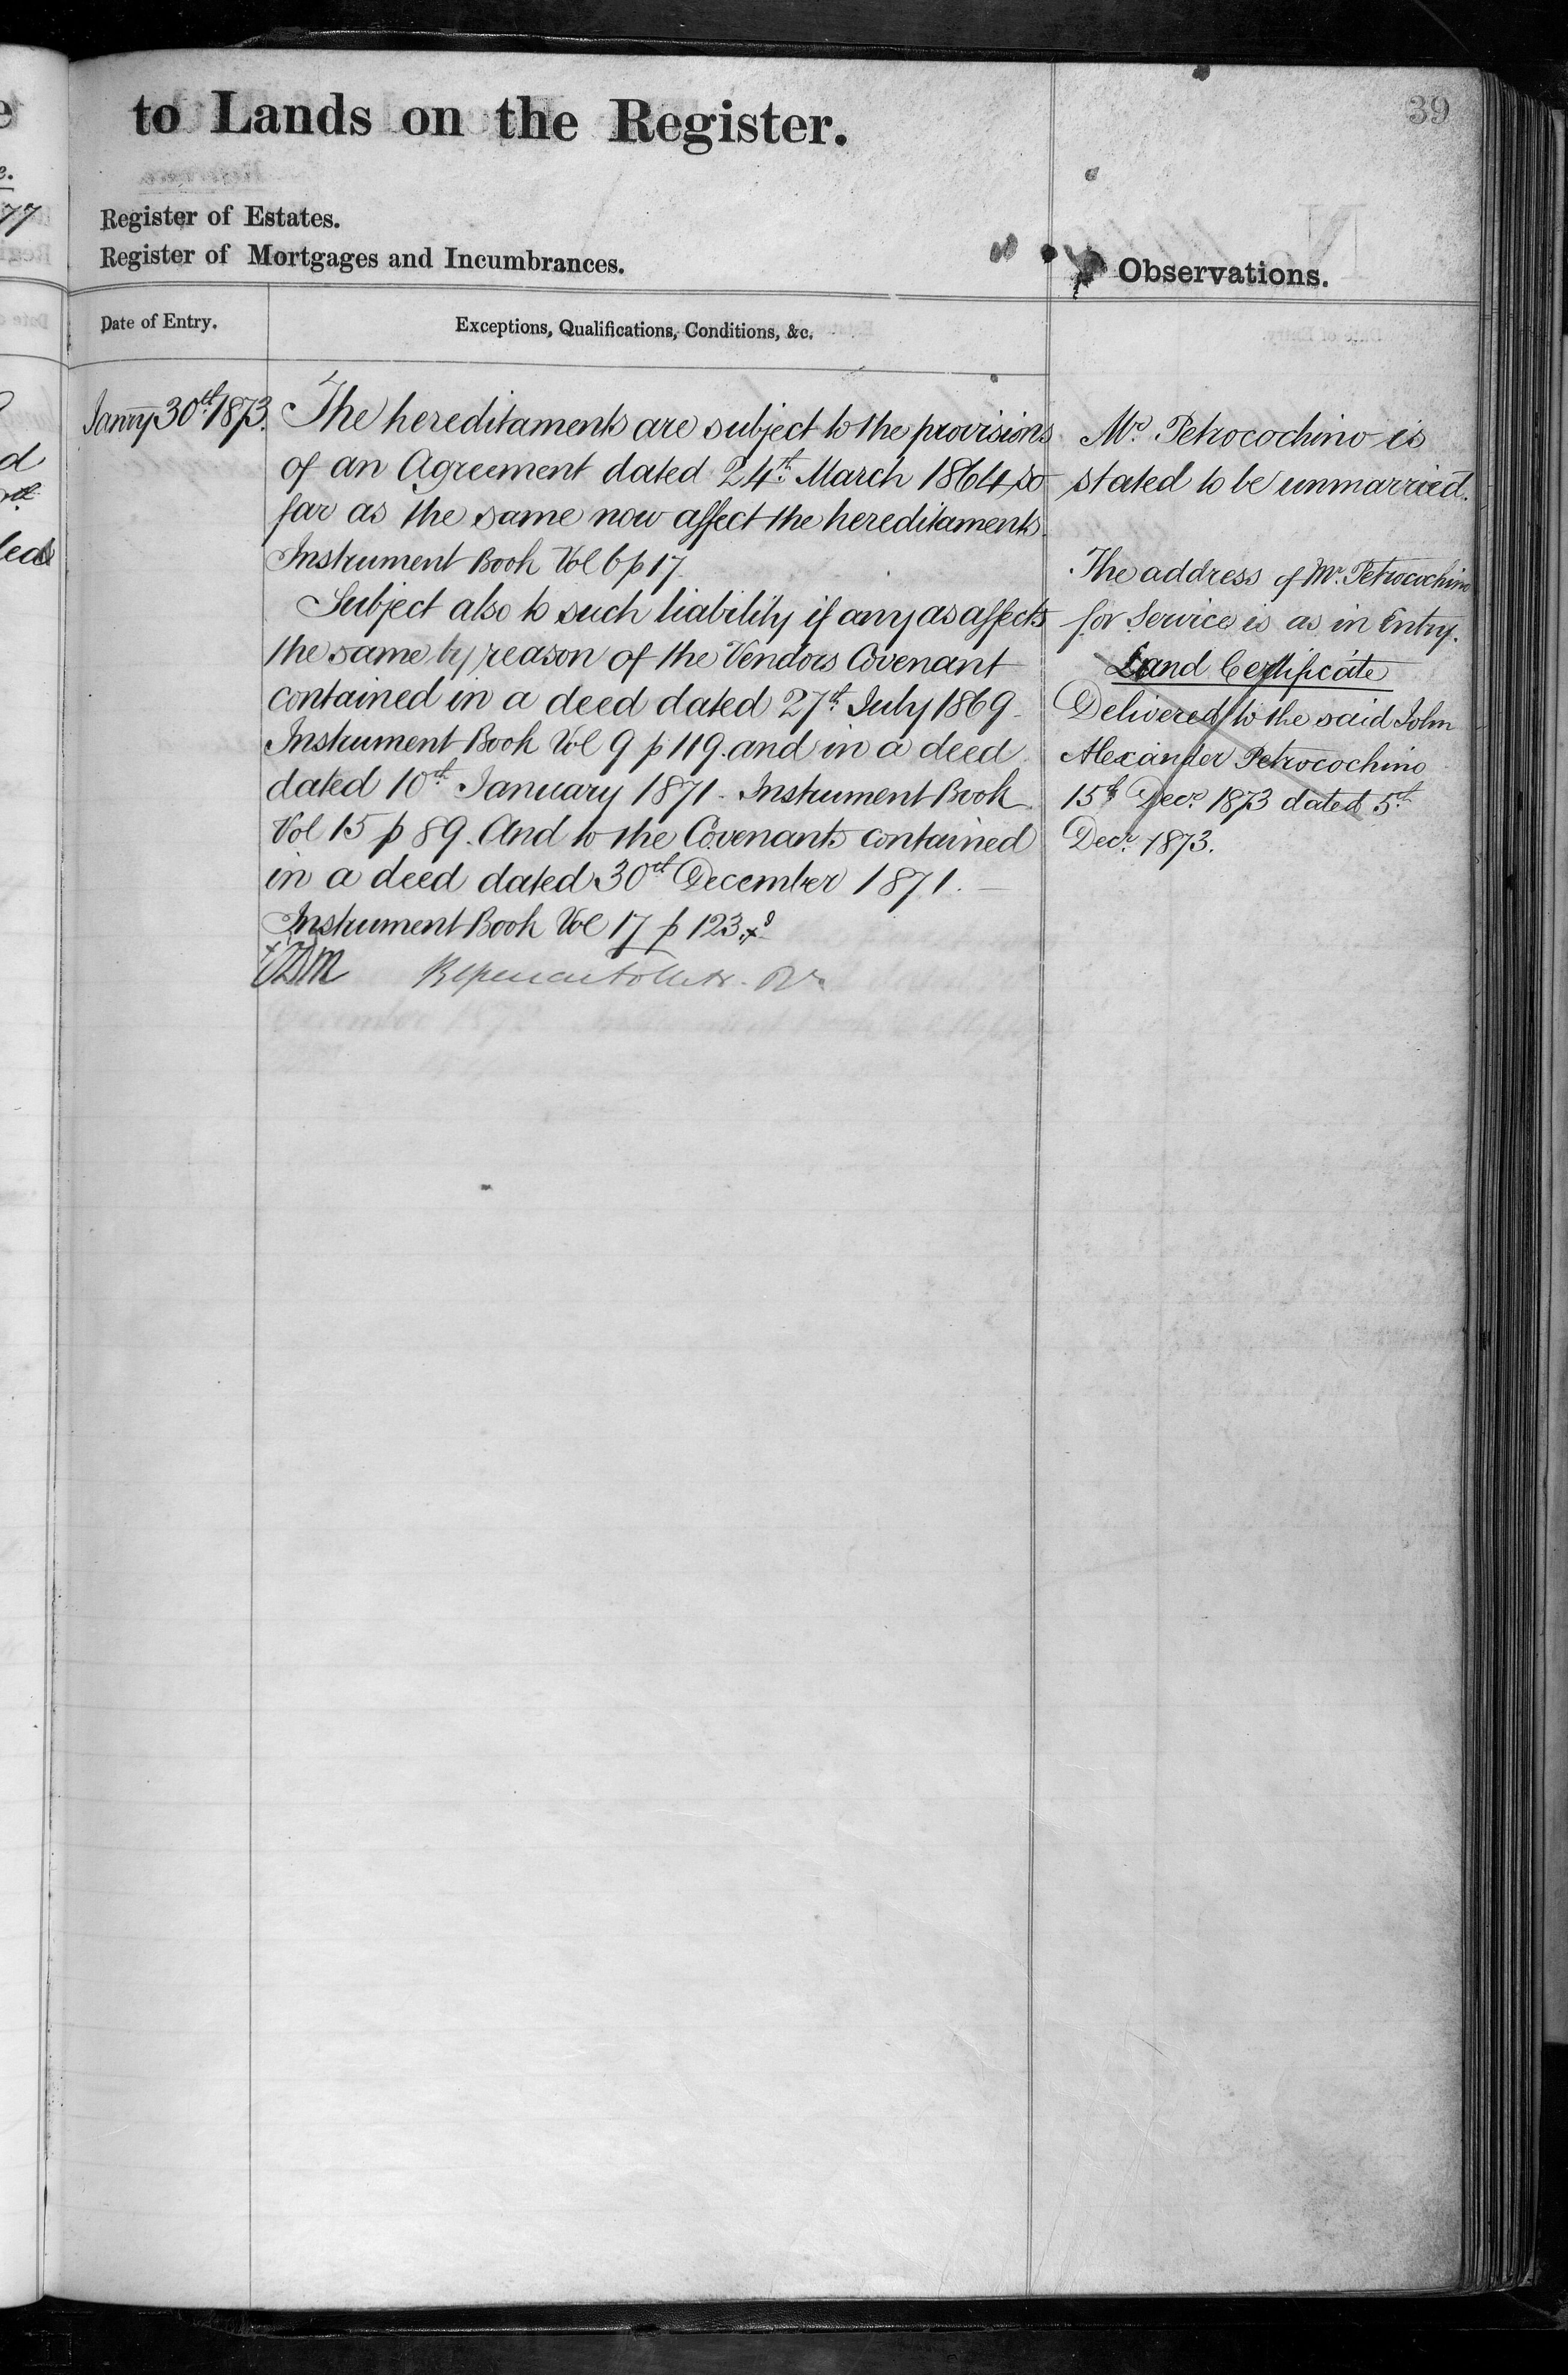 to Lands on the Register.
39
Register of Estates.
Register of Mortgages and Incumbrances.
Observations.
Date of Entry.
Exceptions, Qualifications, Conditions, &c.
Janry 30th 1873.
The hereditaments are subject to the provisions
of an Agreement dated 24th March 1864 so
far as the same now affect the hereditaments.
Instrument Book Vol 6 p 17.
Subject also to such liability if any as affects
the same by reason of the Vendors Covenant
contained in a deed dated 27th July 1869
Instrument Book Vol 9 p 119. and in a deed
dated 10th January 1871 - Instrument Book
Vol 15 p 89. And to the Covenants contained
in a deed dated 30th December 1871. -
Instrument Book Vol 17 p 123.
Mr. Petrocochino is
stated to be unmarried.
The address of Mr. Petrocochino
for Service is as in Entry.
Land Certificate
Delivered to the said John
Alexander Petrocochino
15th Decr. 1873 dated 5th
Decr. 1873.